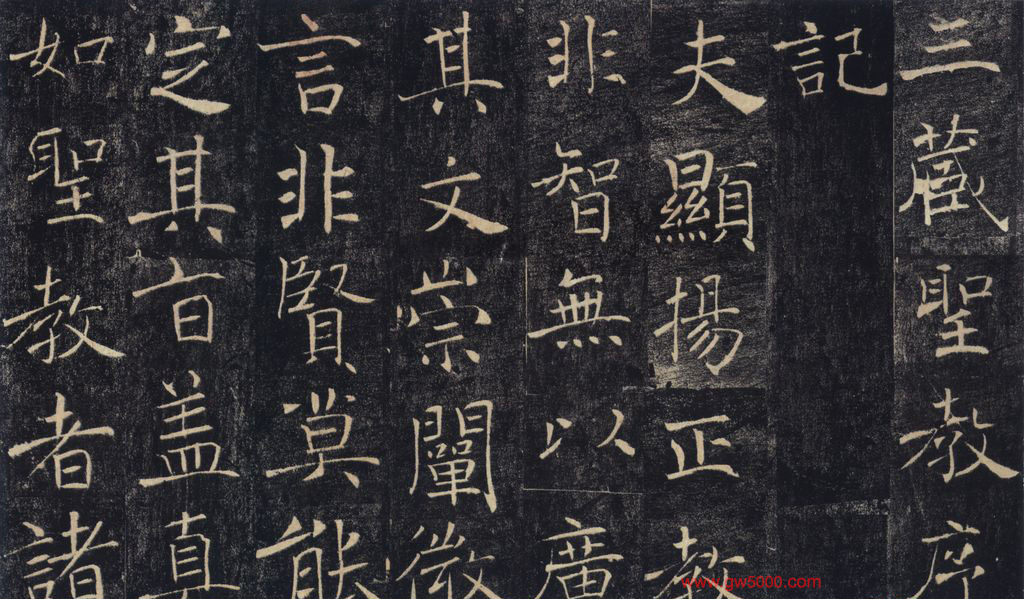 三藏聖教序
記
夫顯揚正教
非智無以廣
其文崇闡微
言非賢莫能
定其旨盖真
如聖教者諸
www.gw5000.com